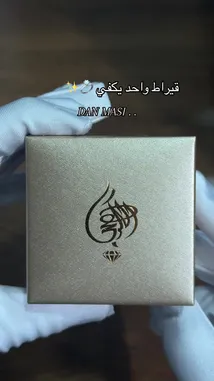 قيراط واحد يكفي 💍✨
DAN MASI . .